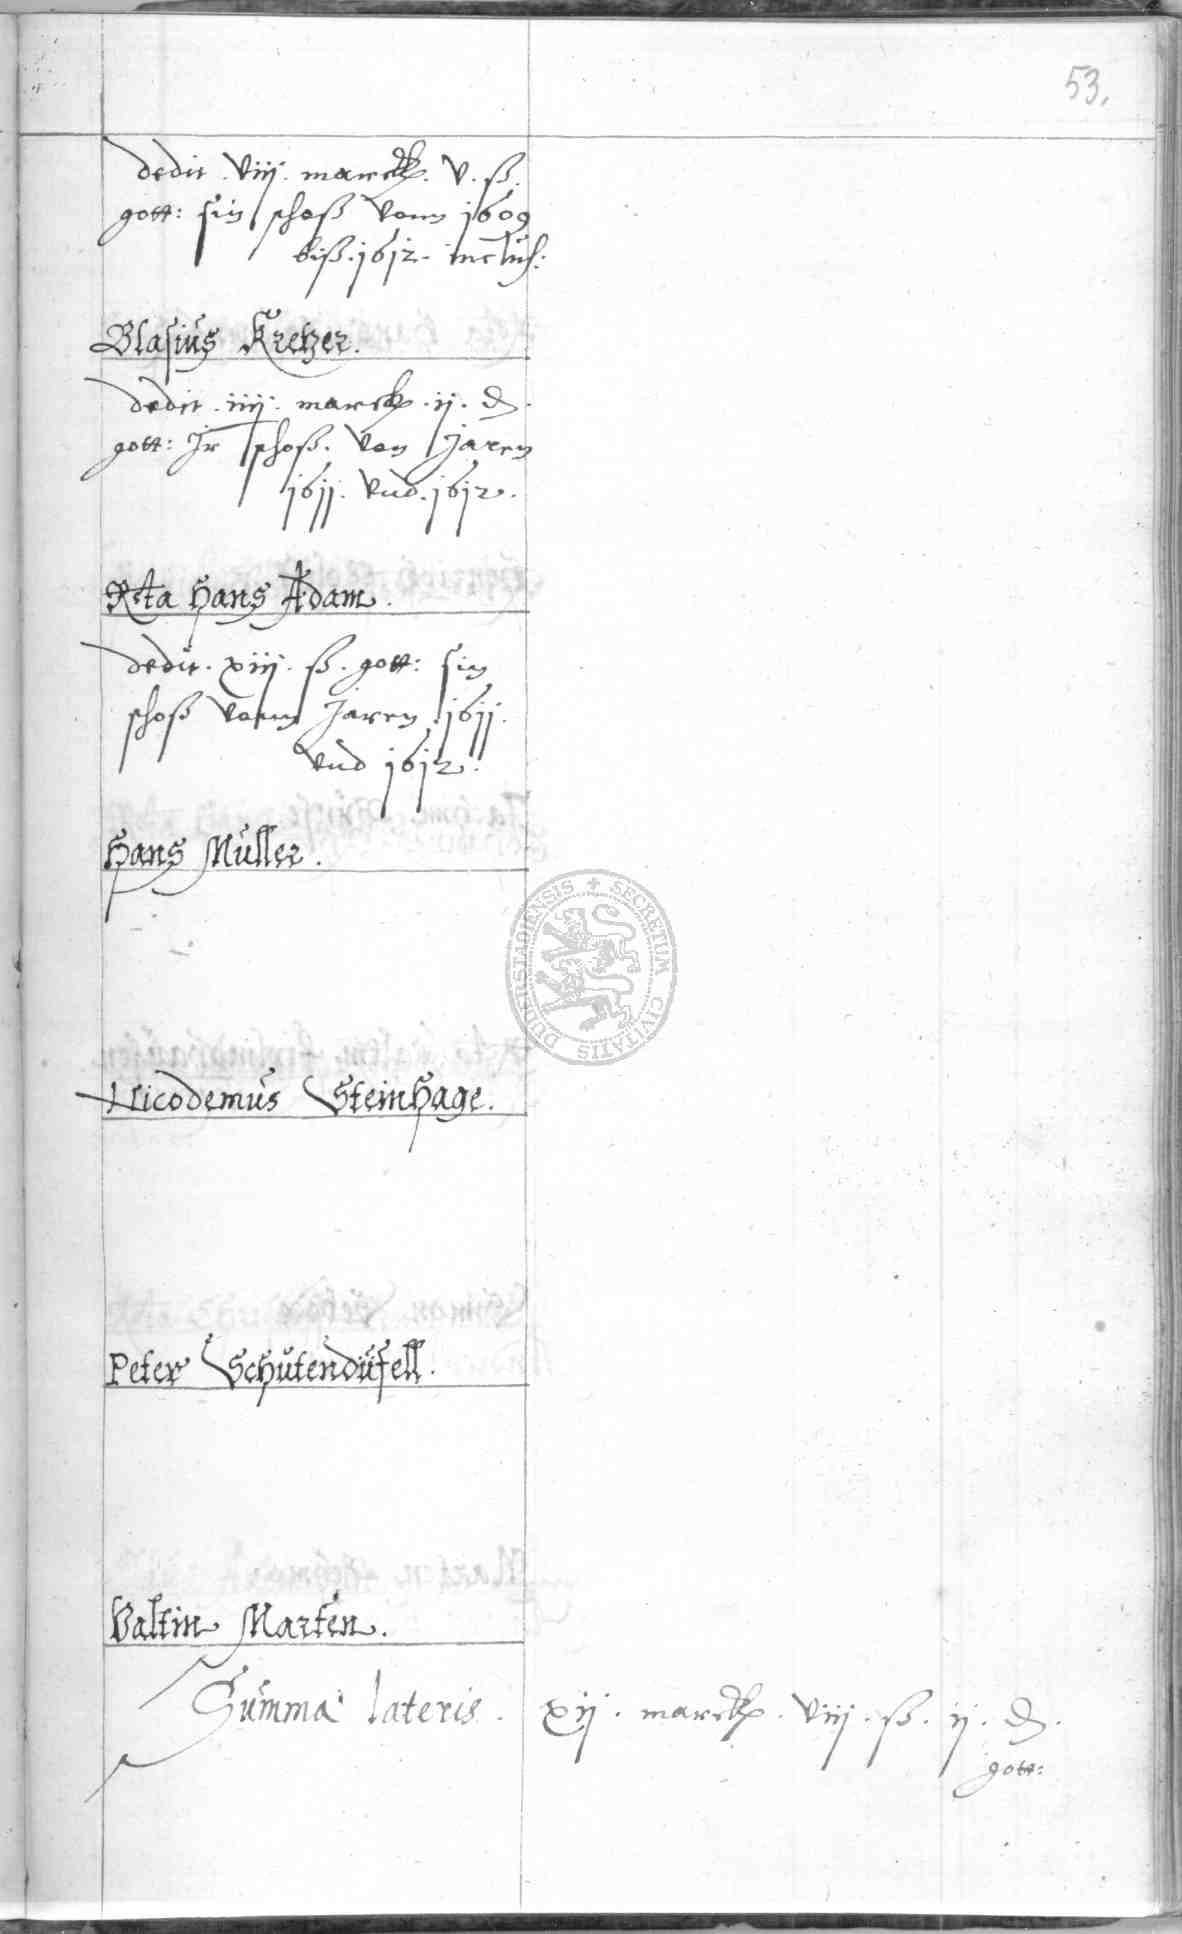 53.
dedit . viij . marck . v . ß .
gott: sin schoß vonn 1609
biß . 1612 . inclus:
Blasius Kretzer .
dedit . iiij . marck . ij . d .
gott: Jr schoß . von Jaren
1611 . vnd . 1612 .
Rcta Hans Adam .
dedit . xiij . ß . gott: sin
schoß vonn Jaren 1611 .
vnd 1612 .
Hans Müller .
Nicodemus Steinhage .
Peter Schutendüfell .
Valtin Marten .
Summa lateris . xij . marck . viij . ß . ij . d .
gott:
SECRETUM CIVITATIS DUDERSTADIENSIS